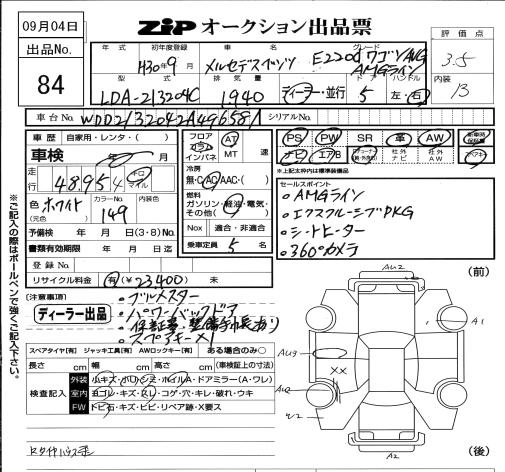 09月04日
出品No.
84
ZIP オークション出品票
評価点
3.5
内装
B
年式 初年度登録 車名 グレード
H30年9月 メルセデスベンツ E220d ワゴン AVG
AMGライン
型式 排気量 ドア ハンドル
LDA-213204C 1940 ディーラー・並行 5 左・右
車台No. WDD2132042A496581 シリアルNo.
車歴 自家用・レンタ( )
車検 年 月
走行 48,954 キロ マイル
色 ホワイト (元色) カラーNo. 149 内装色
予備検 年 月 日(3・8)No.
書類有効期限 年 月 日迄
登録No.
リサイクル料金 有(¥23400) 未
フロア コラム インパネ
AT
MT 速
冷房
無・C・AC・AAC・( )
燃料
ガソリン・軽油・電気・その他( )
Nox 適合・非適合
乗車定員 5 名
PS PW SR 革 AW
ナビ エアB 社外ナビ 社外AW
※上記太枠内は標準装備品
セールスポイント
・AMGライン
・エクスクルーシブPKG
・シートヒーター
・360°カメラ
(注意事項)
ディーラー出品
・パワーバックドア
・保証書・整備手帳あり
・スペアキー×1
スペアタイヤ[有] ジャッキ工具[有] AWロックキー[有] ある場合のみ○
長さ cm 幅 cm 高さ cm (車検証上の寸法)
検査記入
外装 小キズ・ホリ・シミ・ホイルA・ドアミラー(A・ワレ)
室内 ヨゴレ・キズ・スレ・コゲ・穴・キレ・破れ・ウキ
FW トビ石・キズ・ヒビ・リペア跡・X要ス
※ご記入の際はボールペンで強くご記入下さい。
(前)
AU2
A1
AU9
XX
A2
(後)